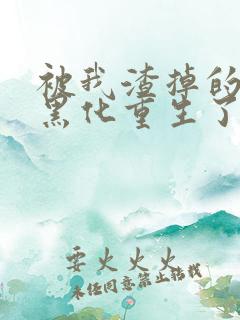 被我渣掉的
黑化重生了
要火火火
未经同意禁止转载